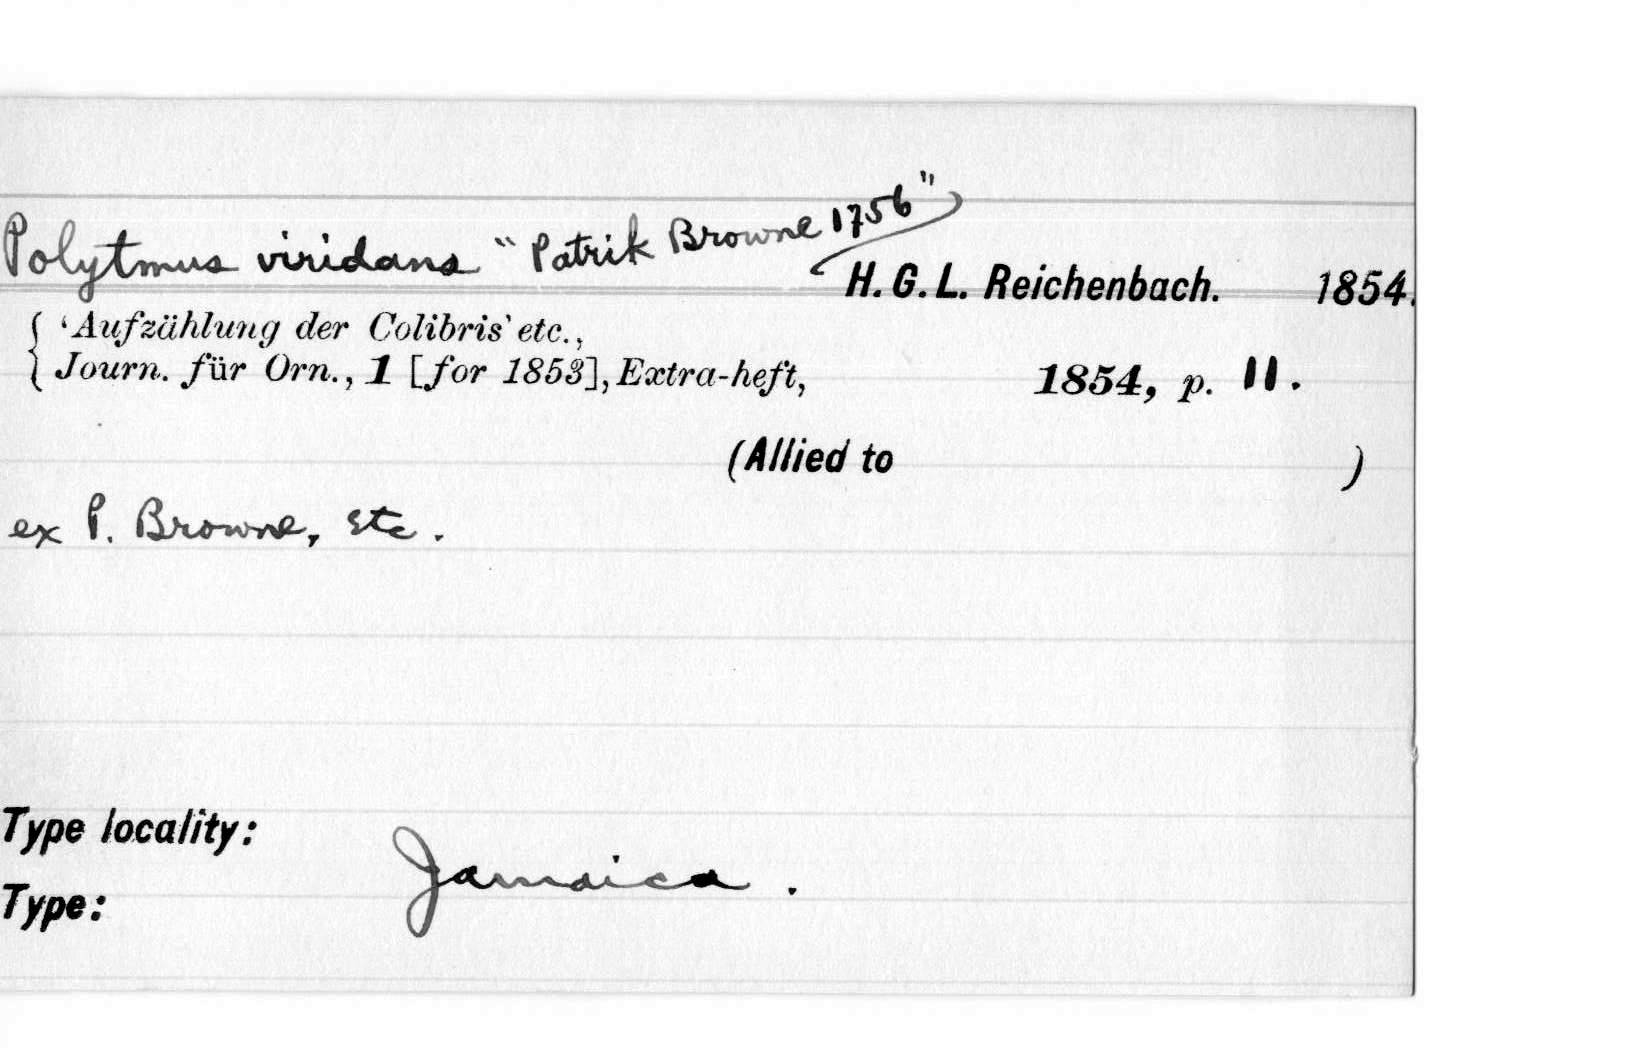 Polytmus viridans "Patrik Browne 1756"
H. G. L. Reichenbach. 1854.
'Aufzählung der Colibris' etc.,
Journ. für Orn., 1 [for 1853], Extra-heft, 1854, p. 11.
(Allied to )
ex P. Browne, etc.
Type locality:
Jamaica.
Type: